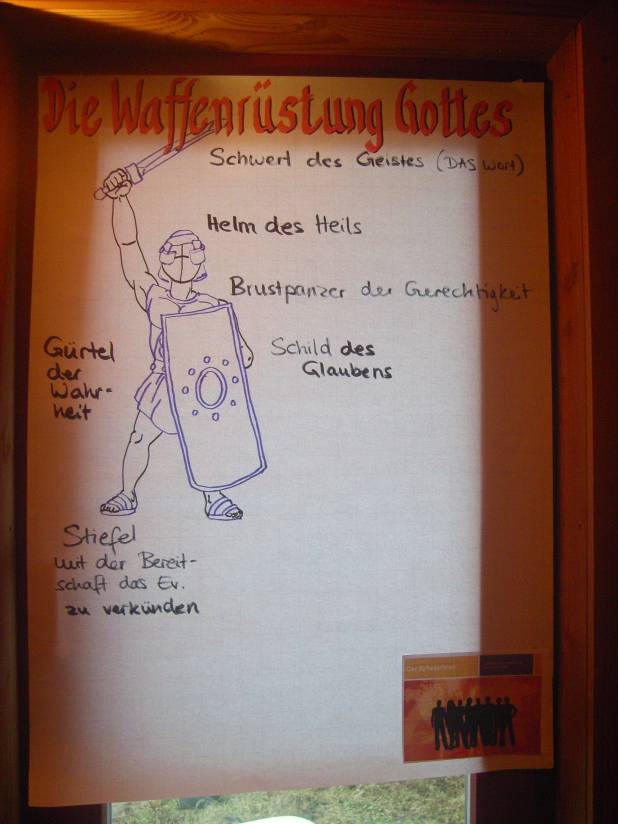 Die Waffenrüstung Gottes
Schwert des Geistes (DAS Wort)
Helm des Heils
Brustpanzer der Gerechtigkeit
Schild des
Glaubens
Gürtel
der
Wahr-
heit
Stiefel
mit der Bereit-
schaft das Ev.
zu verkünden